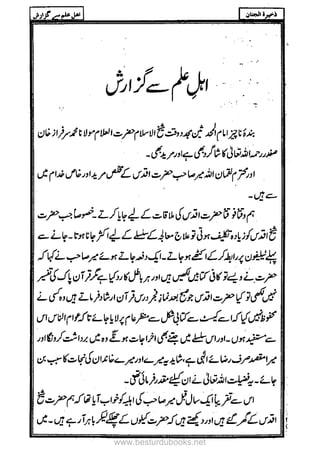 ذخیرۃ الجنان
اهل علم سے گزارش
اہلِ علم سے گزارش
بندۂ ناچیز امام المحدثین مجدد وقت شیخ الاسلام حضرت العلام مولانا محمد سرفراز خان
صفدر رحمہ اللہ تعالیٰ کا شاگرد بھی ہے اور مرید بھی۔
اور محترم لقمان اللہ میر صاحب حضرت اقدس کے مخلص مرید اور خاص خدام میں
سے ہیں۔
ہم وقتاً فوقتاً حضرت اقدس کی ملاقات کے لیے جایا کرتے۔ خصوصاً جب حضرت
شیخ اقدس کو زیادہ تکلیف ہوتی تو علاج معالجہ کے سلسلے کے لیے اکثر جانا ہوتا۔ جانے سے
پہلے ٹیلیفون پر رابطہ کر کے اکٹھے ہو جاتے۔ ایک دفعہ جاتے ہوئے میر صاحب نے کہا کہ
حضرت نے ویسے تو کافی کتابیں لکھیں ہیں اور ہر باطل کا رد کیا ہے مگر قرآن پاک کی تفسیر
نہیں لکھی تو کیا حضرت اقدس جو صبح بعد نماز فجر درس قرآن ارشاد فرماتے ہیں وہ کسی نے
محفوظ نہیں کیا کہ اسے کیسٹ سے کتابی شکل سے منظر عام پر لایا جائے تاکہ عوام الناس اس
سے مستفید ہوں۔ اور اس سلسلے میں جتنے بھی اخراجات ہونگے وہ میں برداشت کرونگا اور
میرا مقصد صرف رضائے الٰہی ہے، شاید یہ میرے اور میرے خاندان کی نجات کا سبب بن
جائے۔ یہ فضیلت اللہ تعالیٰ نے ان کیلئے مقدر فرمائی تھی۔
اس سے تقریباً ایک سال قبل میر صاحب کی اہلیہ کو خواب آیا تھا کہ ہم حضرت شیخ
اقدس کے گھر گئے ہیں اور دیکھتے ہیں کہ حضرت کیلوں کے چھلکے لیکر باہر آ رہے ہیں۔ میں
www.besturdubooks.net